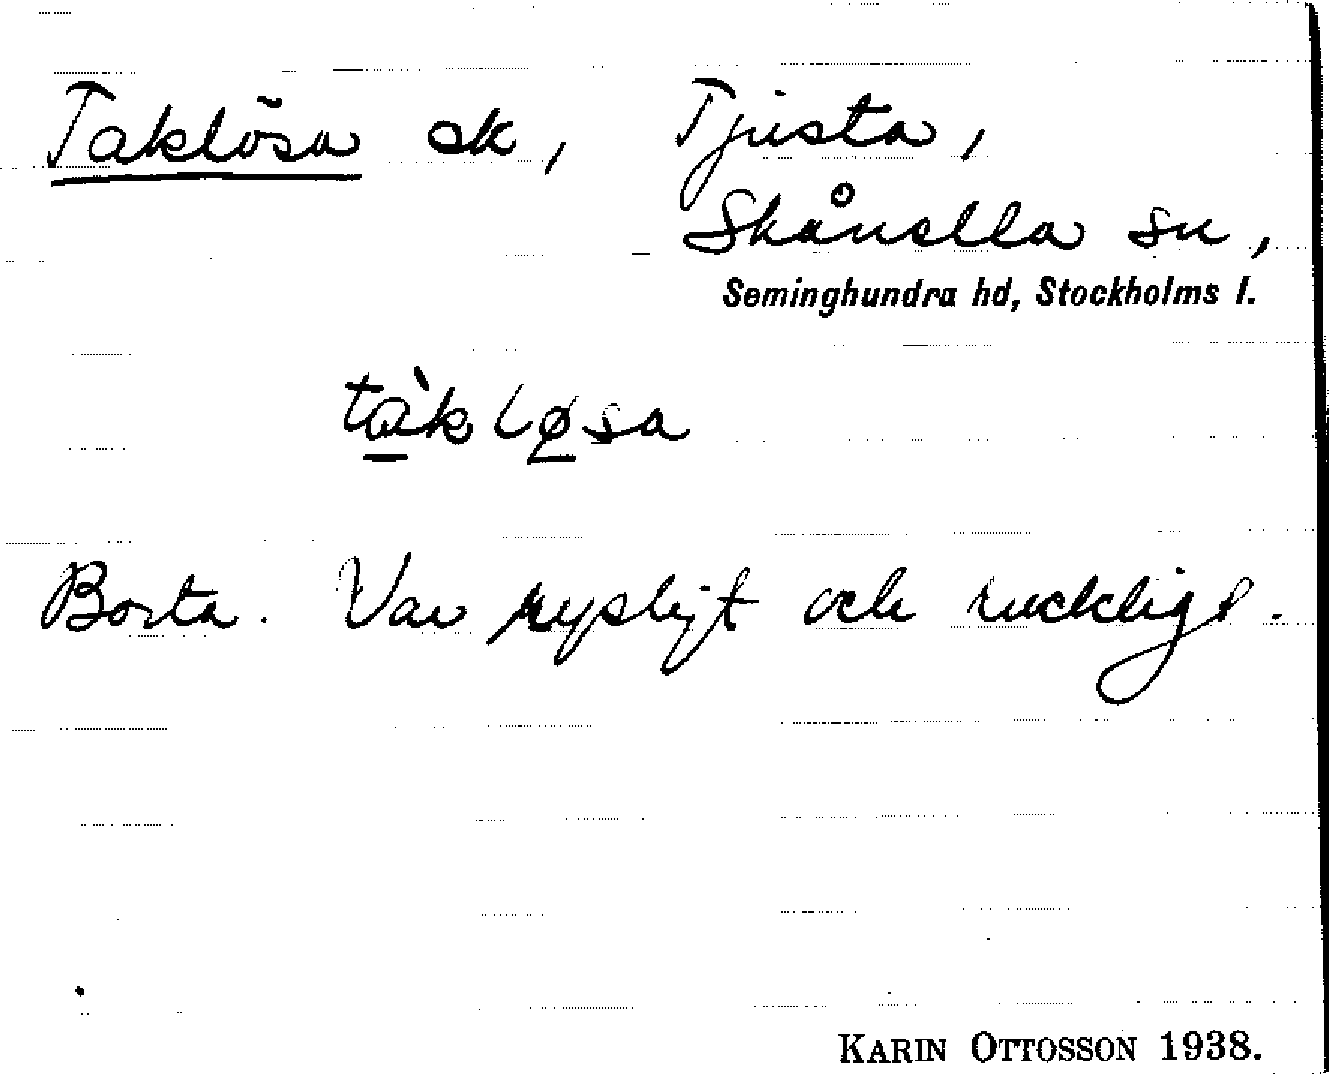 Taklösa ck, Tjusta,
Skånella sn,
Seminghundra hd, Stockholms l.
tàkløsa
Borta. Var rysligt och ruckligt.
KARIN OTTOSSON 1938.